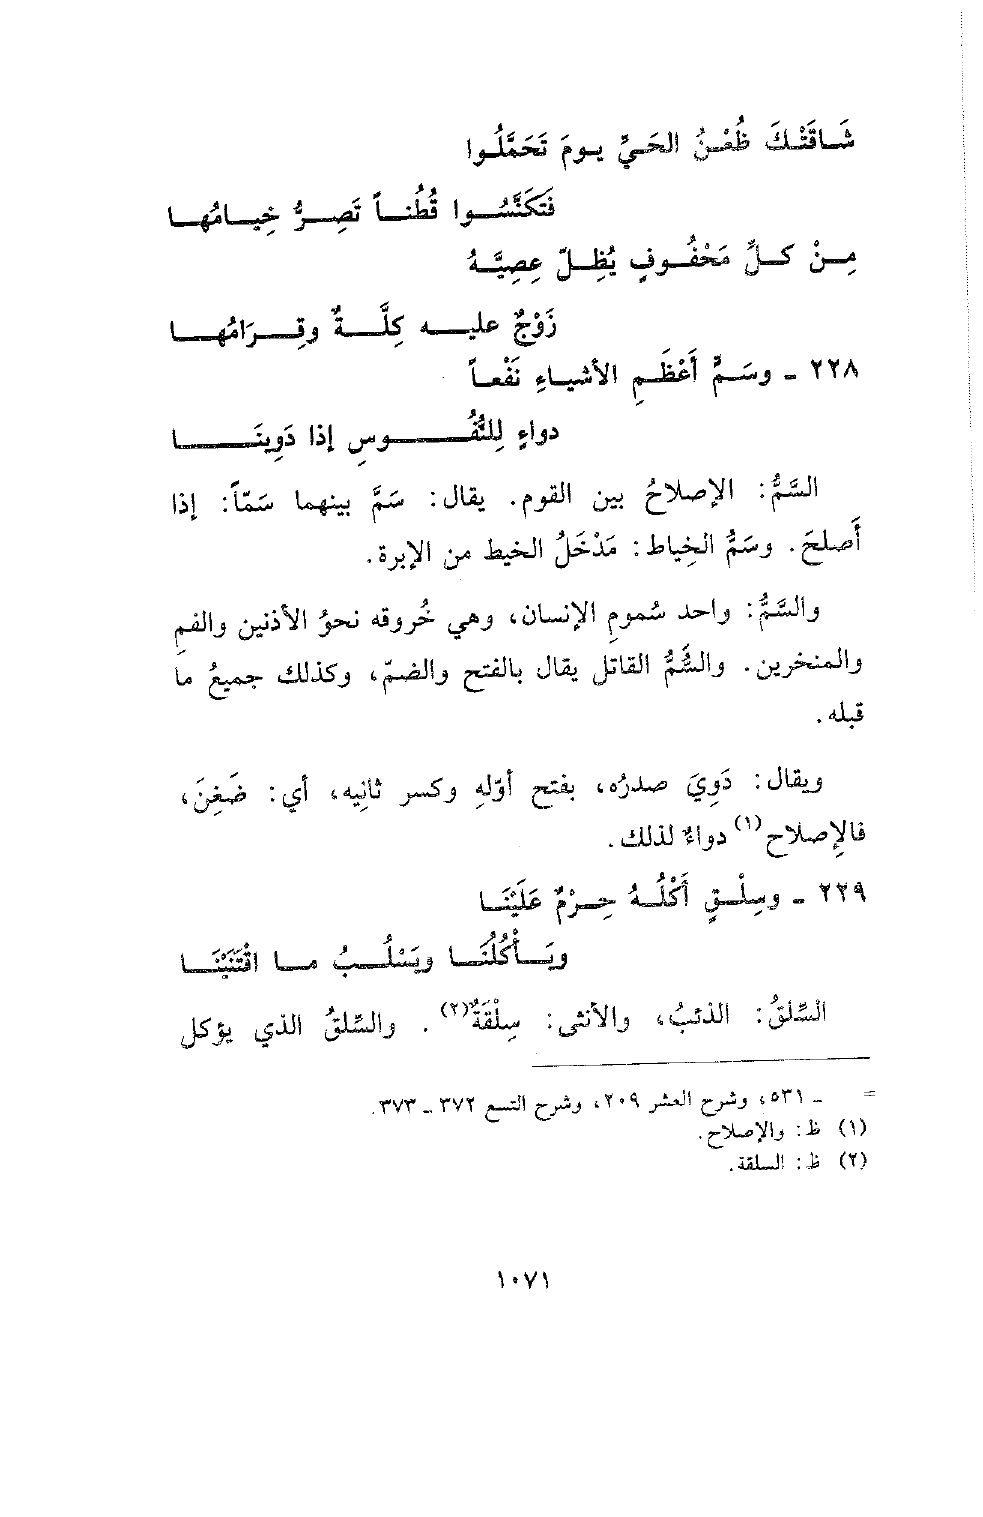 شَاقَتْكَ ظُعْنُ الحَيِّ يومَ تَحَمَّلُوا
فَتَكَنَّسُوا قُطُناً تَصِرُّ خِيامُها
مِنْ كلِّ مَحْفُوفٍ يُظِلّ عِصِيَّهُ
زَوْجٌ عليه كِلَّةٌ وقِرَامُها
٢٢٨ ـ وسَمٍّ أَعْظَمِ الأشياءِ نَفْعاً
دواءٍ لِلنُّفُوسِ إذا دَوِينَا
السَّمُّ: الإصلاحُ بين القوم. يقال: سَمَّ بينهما سَمّاً: إذا
أَصلحَ. وسَمُّ الخِياط: مَدْخَلُ الخيط من الإبرة.
والسَّمُّ: واحد سُمومِ الإنسان، وهي خُروقه نحوُ الأذنين والفمِ
والمنخرين. والسَُّمُّ القاتل يقال بالفتح والضمّ، وكذلك جميعُ ما
قبله.
ويقال: دَوِيَ صدرُه، بفتح أوّلهِ وكسر ثانِيه، أي: ضَغِنَ،
فالإصلاح(١) دواءٌ لذلك.
٢٢٩ ـ وسِلْقٍ أَكْلُهُ حِرْمٌ عَلَيْنَا
ويَأْكُلُنَا ويَسْلُبُ ما اقْتَنَيْنَا
السِّلقُ: الذئبُ، والأنثى: سِلْقَةٌ(٢). والسِّلقُ الذي يؤكل
= ـ ٥٣١، وشرح العشر ٢٠٩، وشرح التسع ٣٧٢ ـ ٣٧٣.
(١) ظ: والإصلاح.
(٢) ظ: السلقة.
١٠٧١